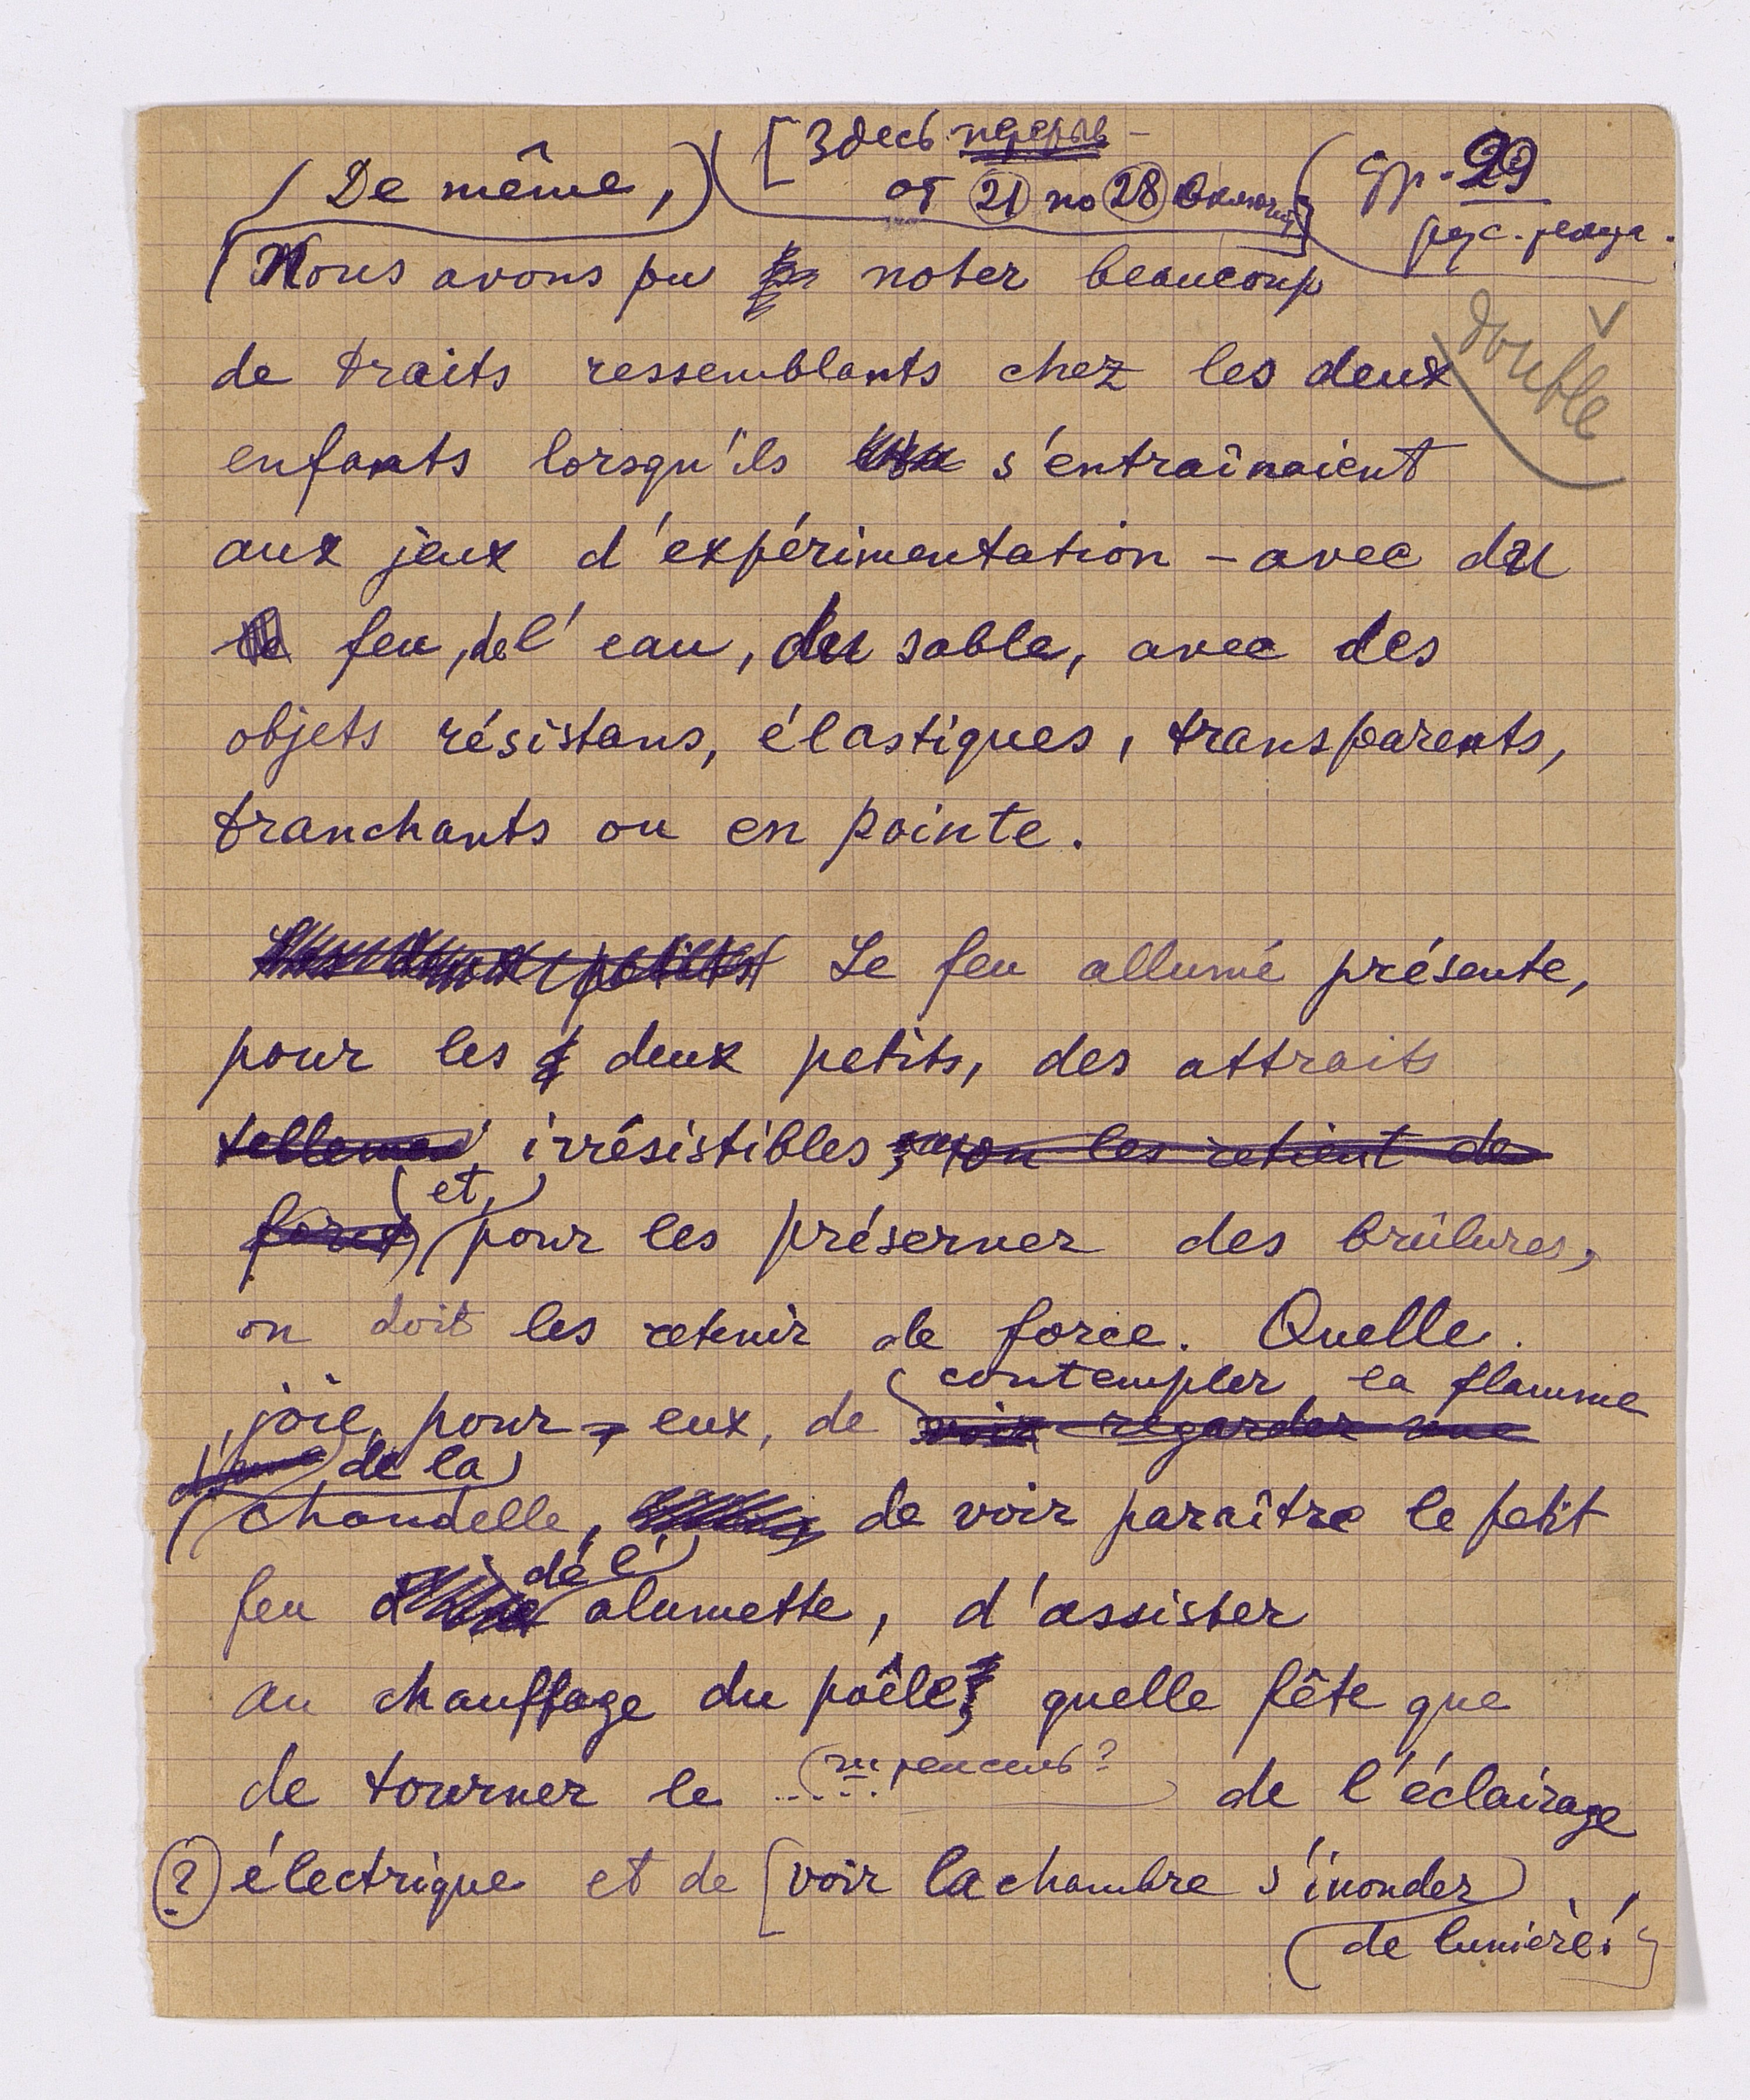 [Здесь перерыв –
(De même,) от 21 по 28 включит.] Стр. 29
Nous avons pu noter beaucoup
double
de traits ressemblants chez les deux
enfants lorsqu'ils s'entraînaient
aux jeux d'expérimentation – avec du
feu, de l'eau, du sable, avec des
objets résistans, élastiques, transparents,
tranchants ou en pointe.
Le feu allumé présente,
pour les deux petits, des attraits
tellement irrésistibles, on les retient de
(et,)
force pour les préserver des brûlures,
on doit les retenir de force. Quelle
contempler la flamme
joie, pour eux, de voir regarder une
d'une de la
chandelle, de voir paraître le petit
de l'
feu d'une alumette, d'assister
au chauffage du poêle, quelle fête que
de tourner le ..... de l'éclairage
(?) électrique et de [voir la chambre s'inonder
de lumière!]